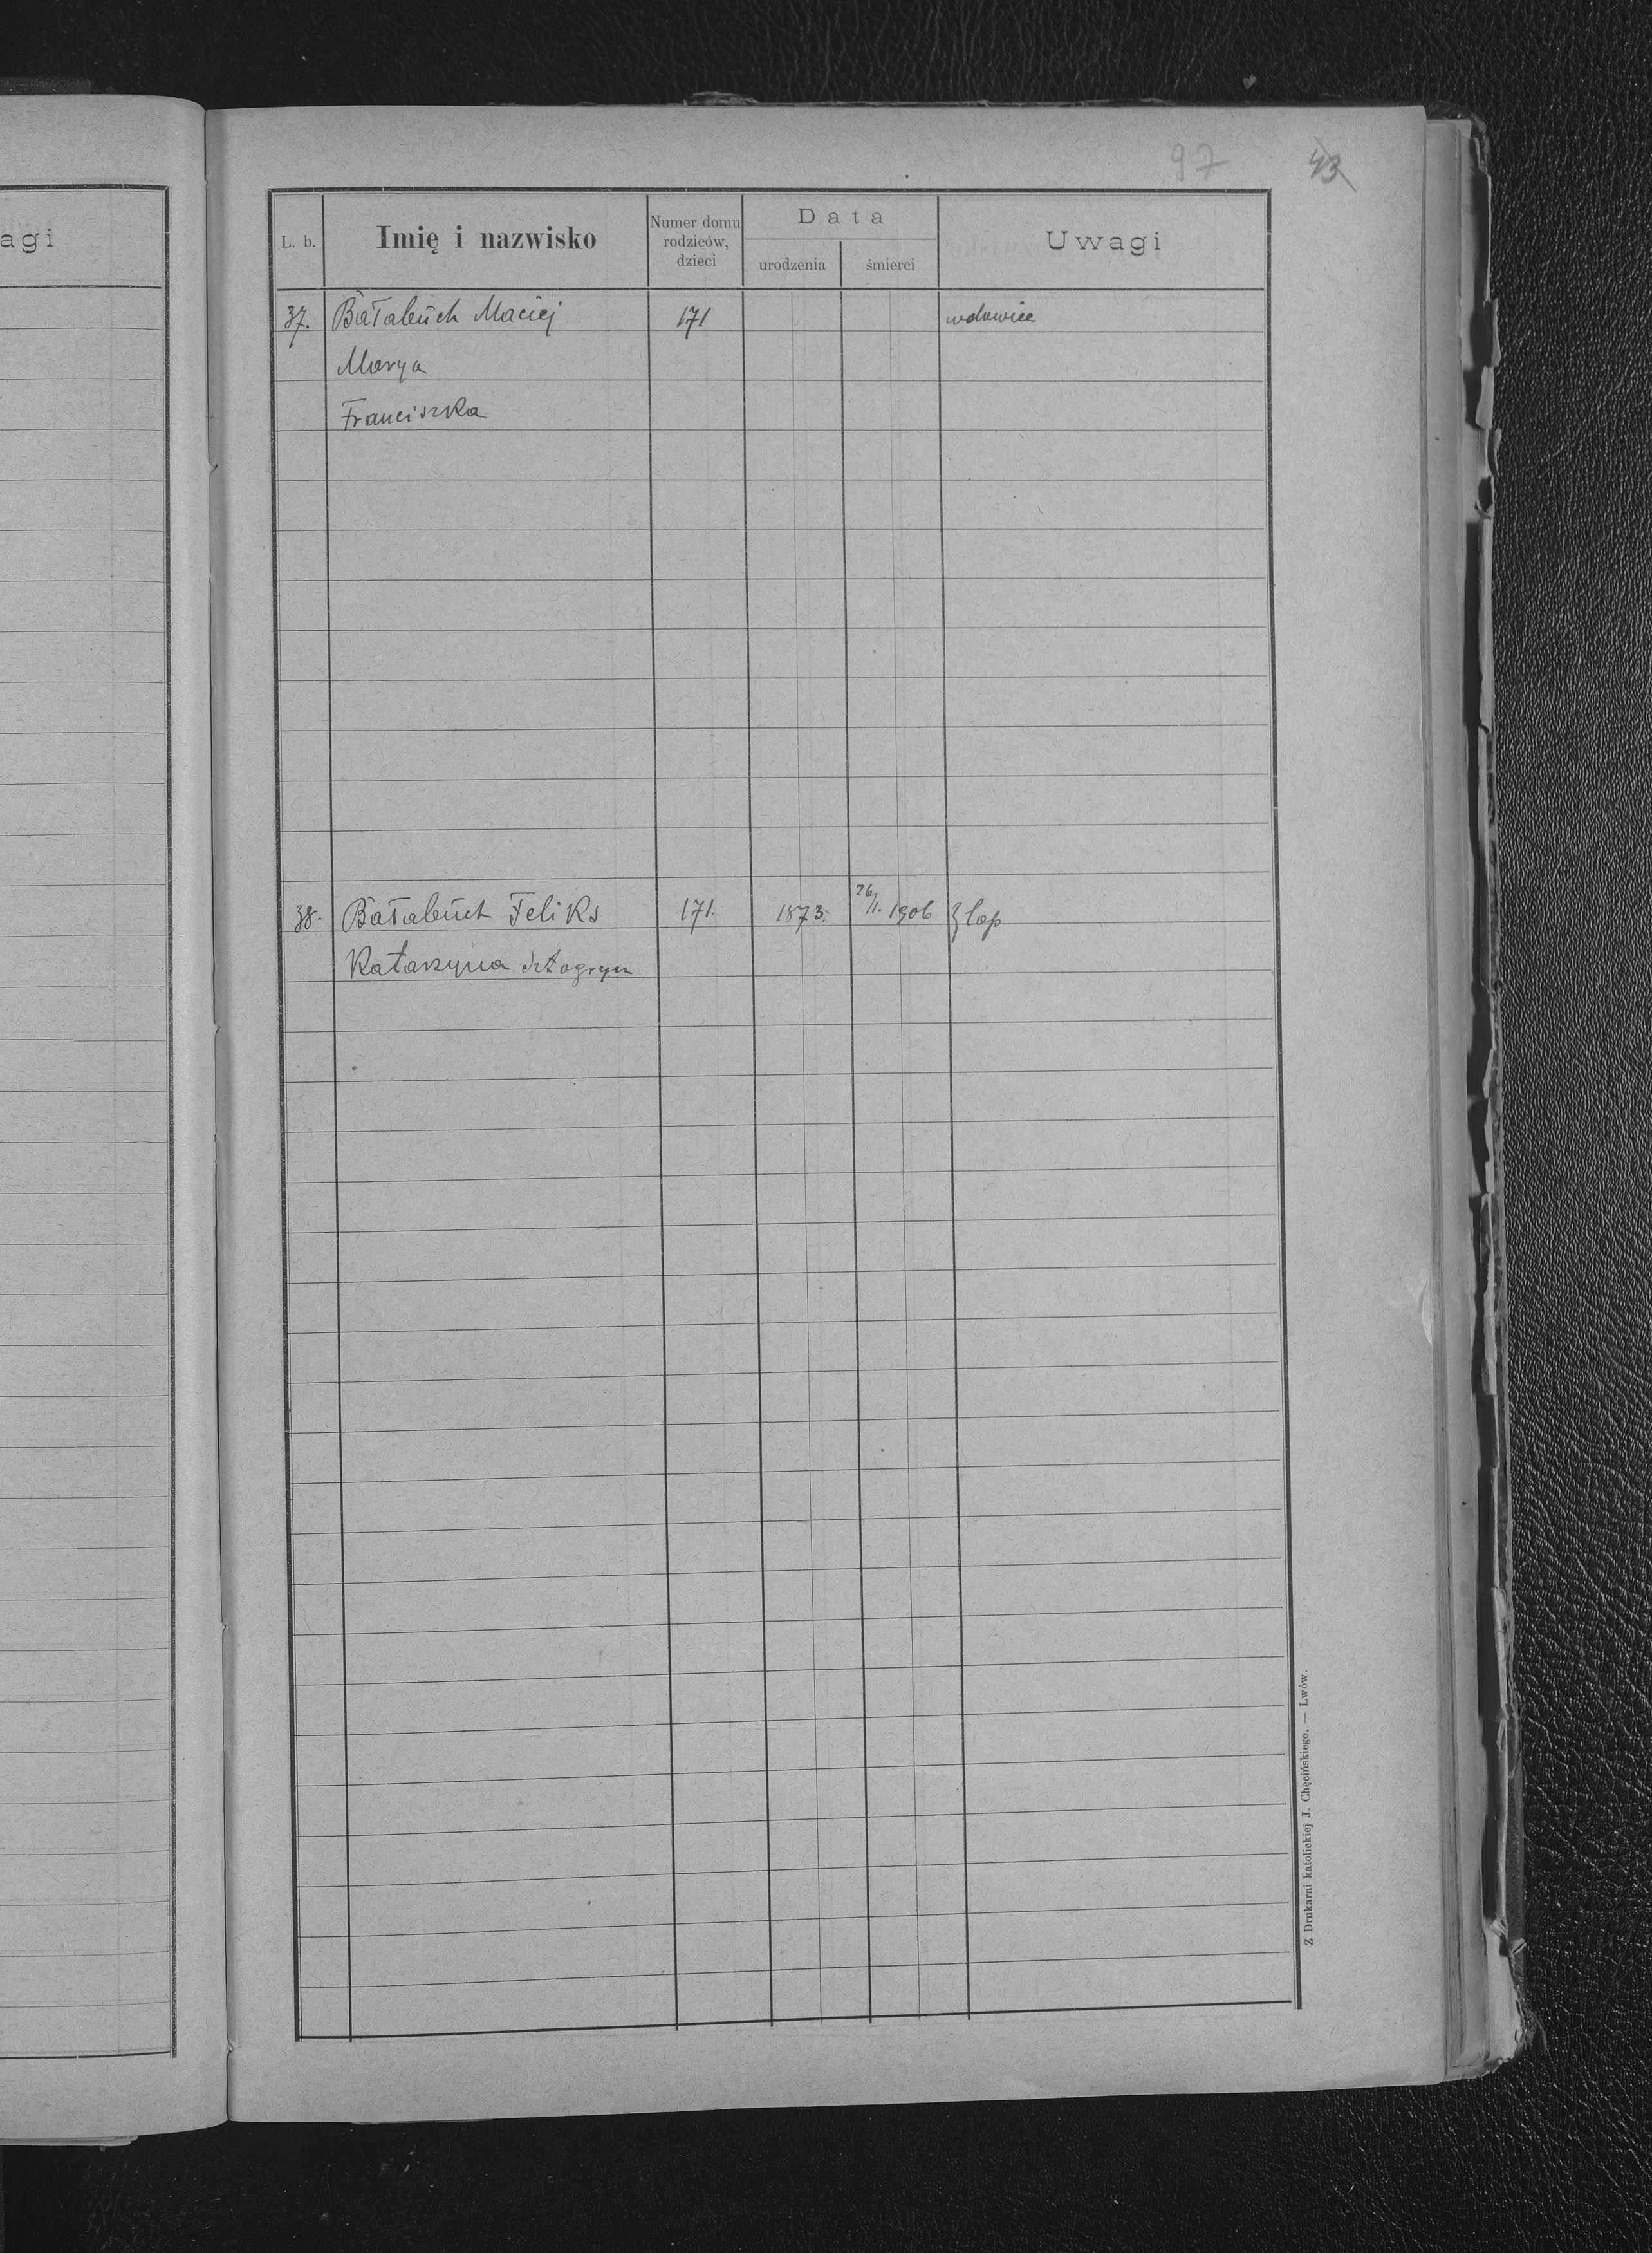 97 43
agi
L. b. Imię i nazwisko Numer domu rodziców, dzieci Data urodzenia śmierci Uwagi
37. Bałabuch Maciej 171 wdowiec
Marya
Franciszka
38. Bałabuch Feliks 171. 1873. 26/1. 1906
Katarzyna
Z Drukarni katolickiej J. Chęcińskiego. — Lwów.